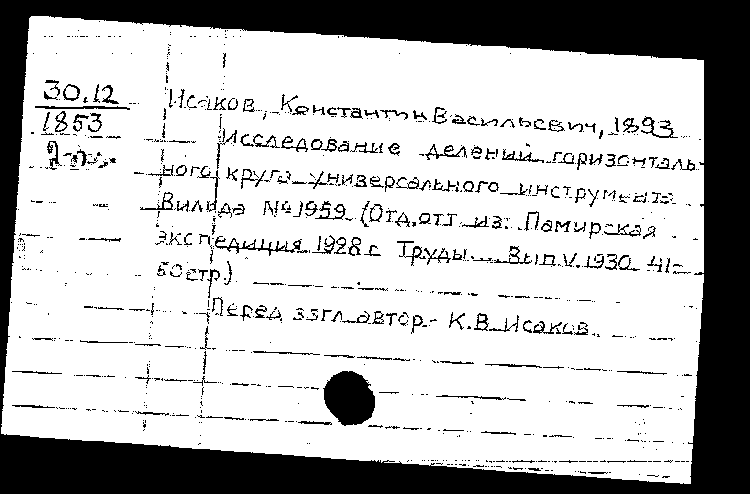 30.12
1853
Исаков, Константин Васильевич, 1893
Исследование делений горизонталь-
ного круга универсального инструмента
Вильда № 1959 (Отд.отт из: Памирская
экспедиция 1928 г Труды... Вып V. 1930 41-
50 стр)
Перед загл автор - К.В. Исаков